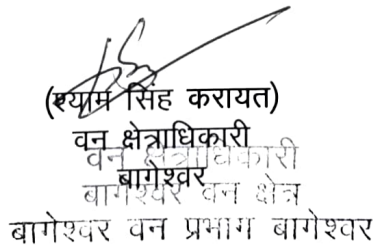 (श्याम सिंह करायत)
वन क्षेत्राधिकारी
वन क्षेत्राधिकारी
बागेश्वर
बागेश्वर वन क्षेत्र
बागेश्वर वन प्रभाग बागेश्वर